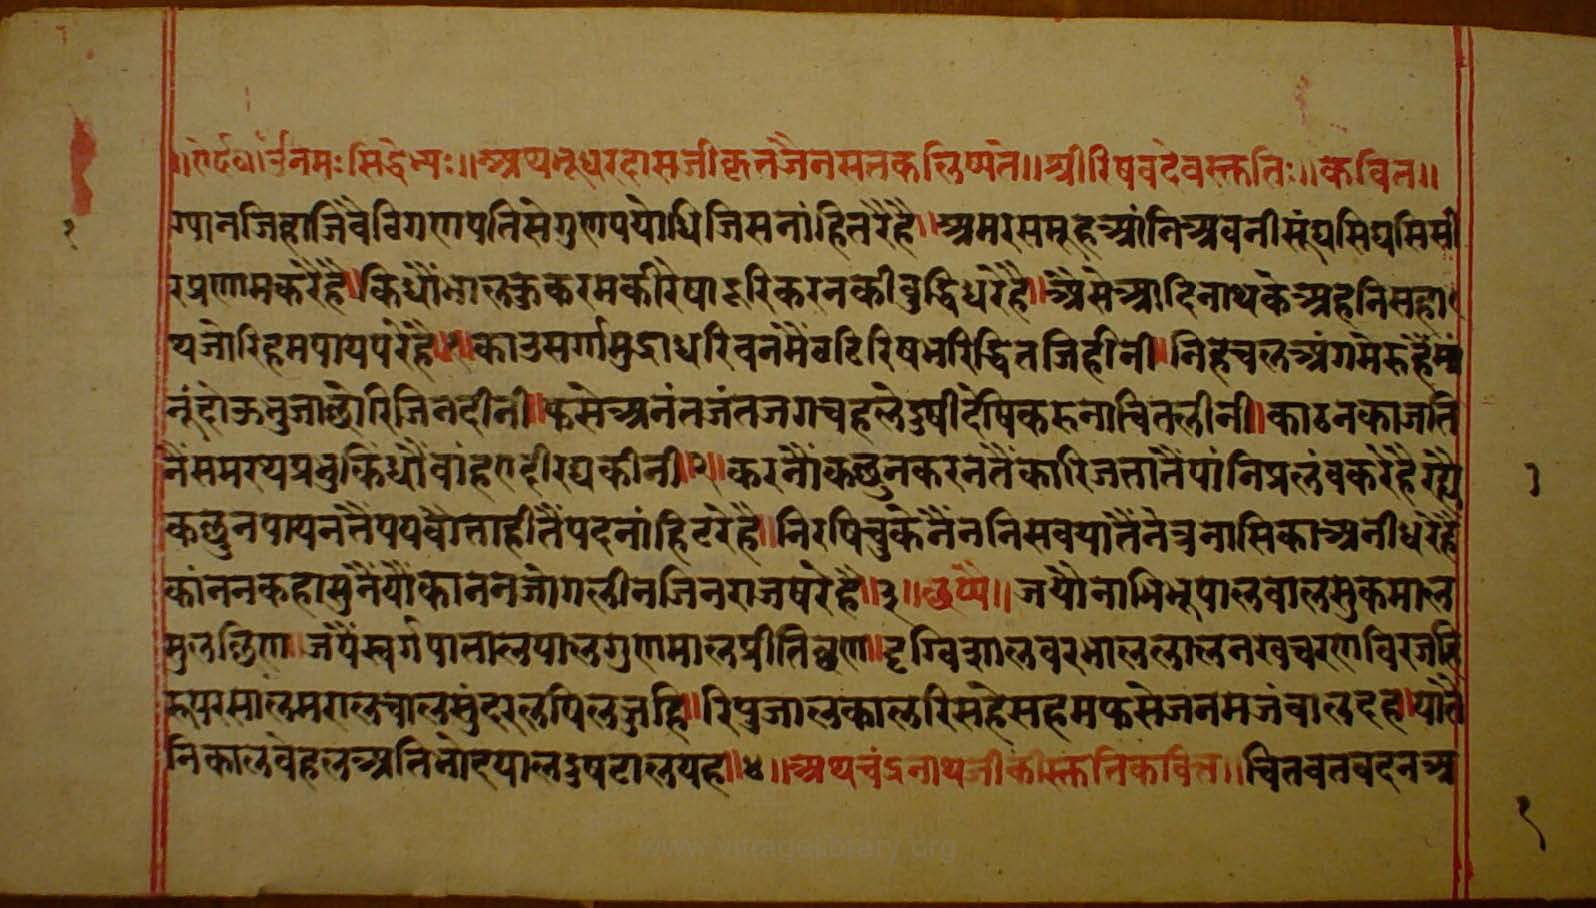 ॥ॐनमःसिद्धेभ्यः॥अथभूधरदासजीकृतजैनसतकलिष्यते॥श्रीरिषवदेवस्तुतिः॥कवित॥
ग्यानजिहाजिवैविगणपतिसेगुणपयोधिजिसनांहितरैहै॥अमरसमूहआंनिअवनीसूंघसिघसिसी
रप्रणामकरैहै॥किधौंभालकुकरमकीरेषादूरिकरनकीबुद्धिधरेहै॥अैसेआदिनाथकेअहनिसहा
थजोरिहमपायपरेहै॥१॥काउसर्गामुद्राधरिवनमैंवटिरिषभरिद्धितजिहीनी॥निहेचलअंगमेरुहैमां
नूंहोऊभुजाछोरिजिनदीनी॥फसेअनंतजंतजगचहलेदुषीदेषिकरुनाचितलीनी॥काढनकाजति
नैंसमरथप्रभुकिधौंवांहएदीरघकीनी॥२॥करनौंकछुनकरनतैंकारिजतातैंपांनिप्रलंवकरेहैरह्यौ
कछुनपायनतैपयवौताहीतैंपदनांहिटरेहै॥निरषिचुकेनैंननिसवयातैंनेत्रनासिकाअनीधरेहै
कांननकहासुनैंयौंकाननजोगलीनजिनराजषरेहै॥३॥छप्पै॥जयौनाभिभूपालवालसुकमाल
सुलछिण॥जयैंस्वर्गपातालपालगुणमालप्रतिछण॥दृगविशालवरभालललालनखचरणविरजहि
रूपरसालमरालचालसुंदरलषिलजहि॥रिपुजालकालरिसहेसहमफसेजनमजंवालदह॥यातै
निकालवेहलअतिनोदयालदुषटालयह॥४॥अथचंद्रनाथजीकीस्तुतिकवित॥चितवतवदनअ
१
www.vitragelibrary.org
१